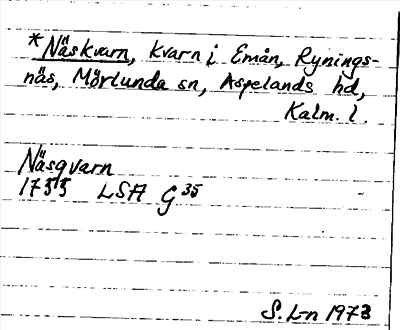 *Näskvarn, kvarn i Emån, Rynings-
näs, Mörlunda sn, Aspelands hd,
Kalm. l.
Näsqvarn
1733 LSA G 35
S. L-n 1973